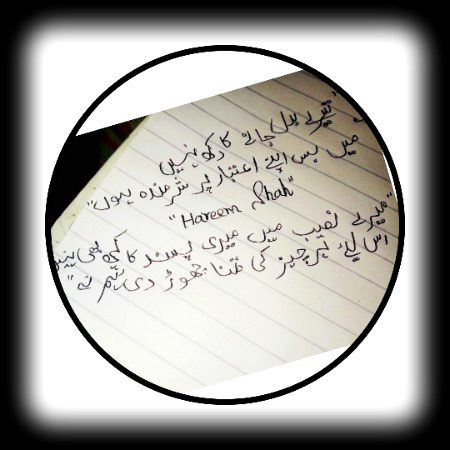 "تیرے بدل جانے کا دکھ نہیں
میں بس اپنے اعتبار پر شرمندہ ہوں"
"Hareem Shah"
"میرے نصیب میں میری پسند کا کچھ بھی نہیں
اس لیے ہر چیز کی تمنا چھوڑ دی ہم نے"